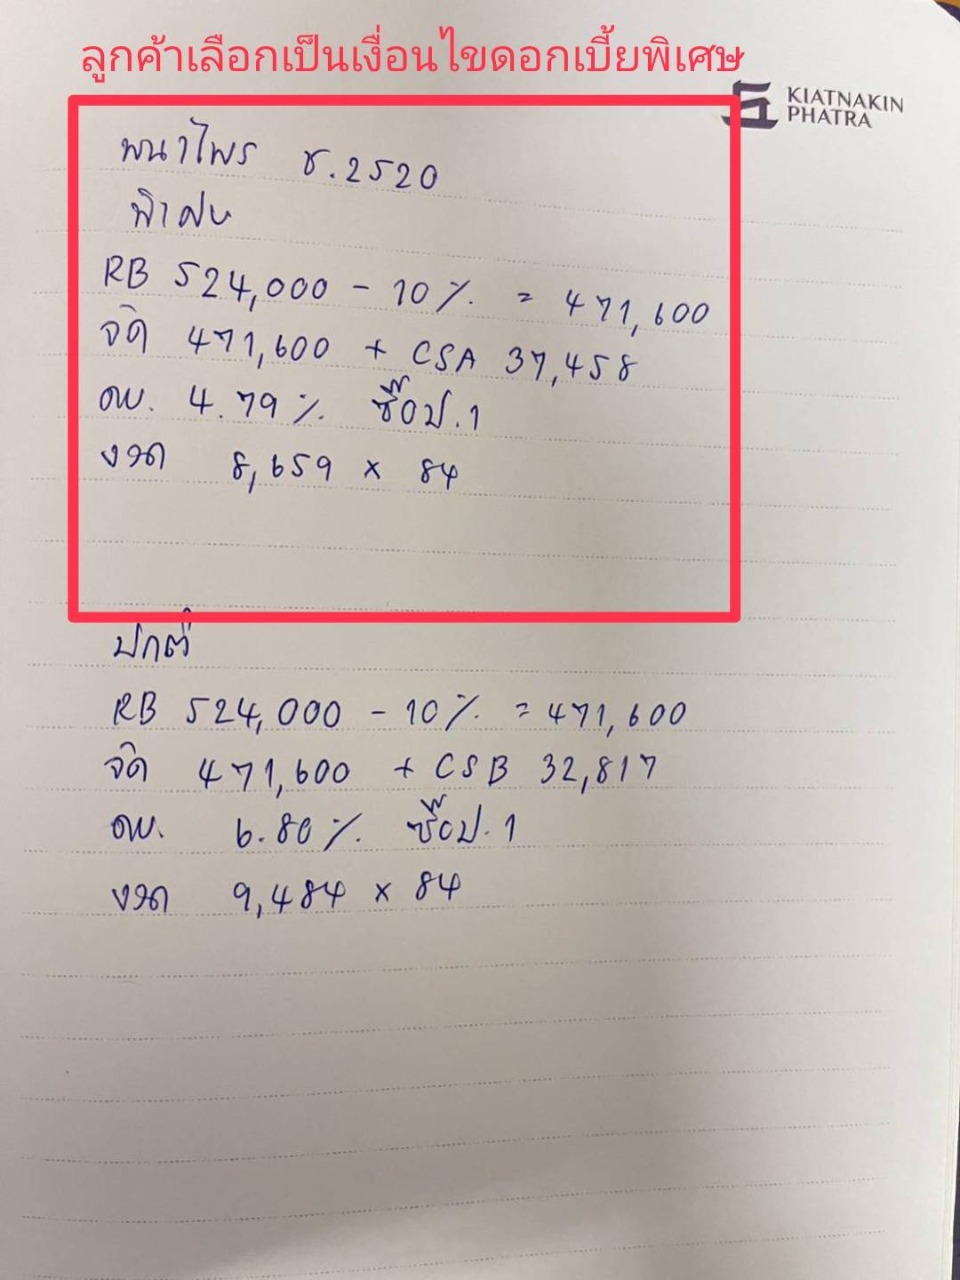 ลูกค้าเลือกเป็นเงื่อนไขดอกเบี้ยพิเศษ
KIATNAKIN
PHATRA
พนาไพร ช.2520
พิเศษ
RB 524,000 - 10% = 471,600
จัด 471,600 + CSA 37,458
ดบ. 4.79% ซื้อป.1
งวด 8,659 x 84
ปกติ
RB 524,000 - 10% = 471,600
จัด 471,600 + CSB 32,817
ดบ. 6.80% ซื้อป.1
งวด 9,484 x 84